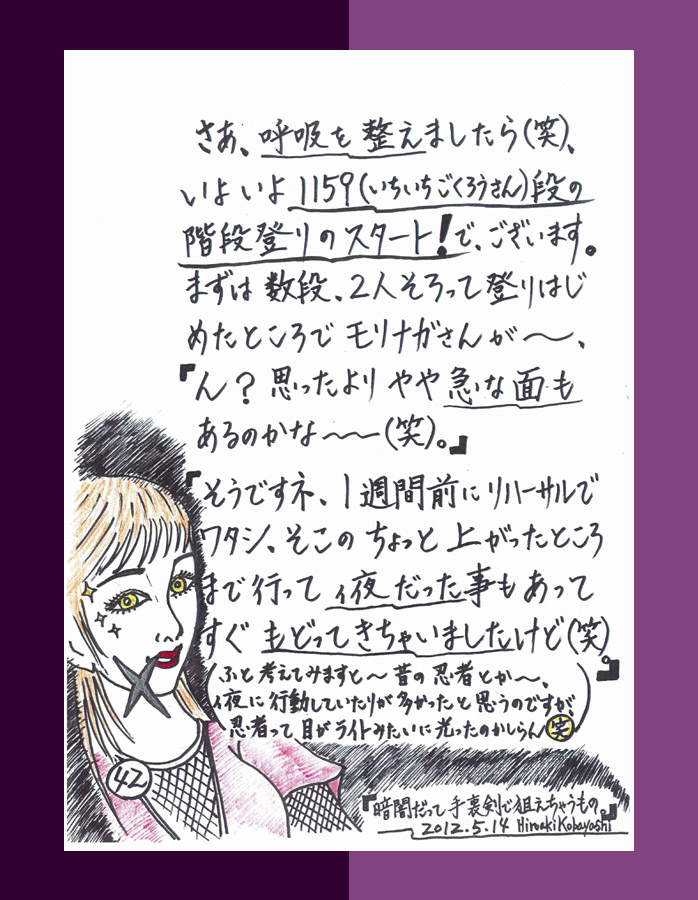 さあ、呼吸を整えましたら(笑)、
いよいよ1159(いちいちごくろうさん)段の
階段登りのスタート!で、ございます。
まずは数段、2人そろって登りはじ
めたところでモリナガさんが〜、
『ん?思ったよりやや急な面も
あるのかな〜〜(笑)。』
『そうですネ、1週間前にリハーサルで
ワタシ、そこのちょっと上がったところ
まで行って夜だった事もあって
すぐもどってきちゃいましたけど(笑)』
(ふと考えてみますと〜昔の忍者とか〜、
夜に行動していたりが多かったと思うのですが
忍者って目がライトみたいに光ったのかしらん笑)
42
『暗闇だって手裏剣で狙えちゃうもの。』
2012.5.14 Hiroaki Kobayashi